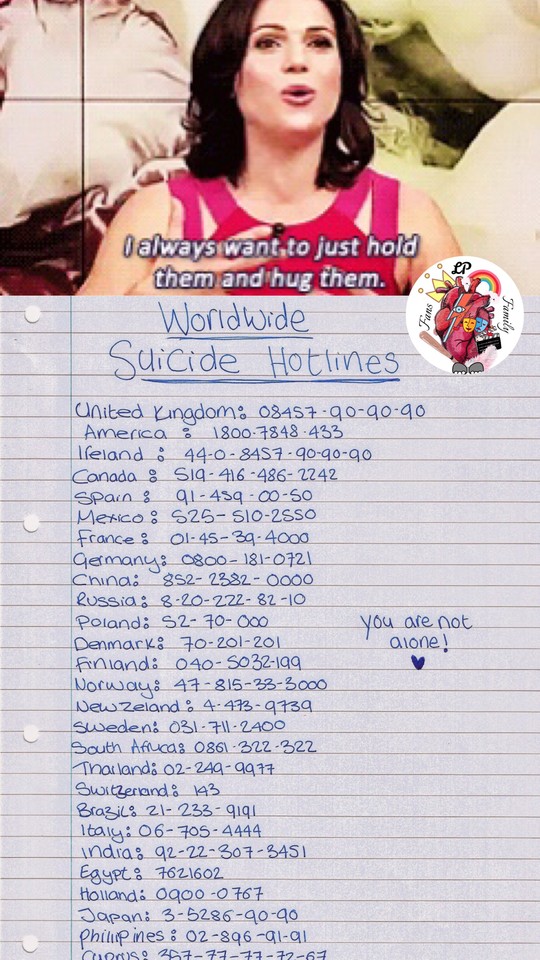 I always want to just hold
them and hug them.
LP
Fans
Family
Worldwide
Suicide Hotlines
United Kingdom: 08457-90-90-90
America : 1800-7848-433
Ireland : 44-0-8457-90-90-90
Canada : 519-416-486-2242
Spain : 91-459-00-50
Mexico : 525-510-2550
France : 01-45-39-4000
Germany: 0800-181-0721
China: 852-2382-0000
Russia: 8-20-222-82-10
Poland: 52-70-000
Denmark: 70-201-201
Finland: 040-5032-199
Norway: 47-815-33-3000
New Zeland : 4-473-9739
Sweden: 031-711-2400
South Africa: 0861-322-322
Thailand: 02-249-9977
Switzerland : 143
Brazil: 21-233-9191
Italy: 06-705-4444
India: 92-22-307-3451
Egypt: 7621602
Holland: 0900-0767
Japan: 3-5286-90-90
Philipines : 02-896-91-91
Cyprus: 357-77-77-72-67
you are not
alone!